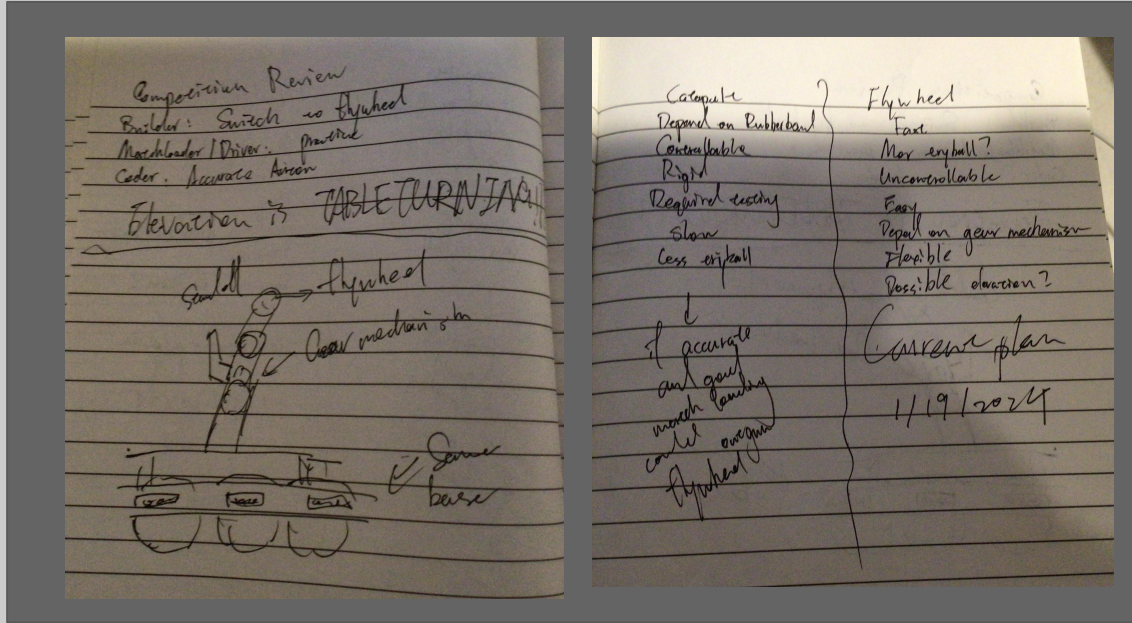 Competition Review
Builder: Switch to flywheel
Matchloader / Driver: practice
Coder: Accurate Auton
Elevation is TABLE TURNING!!
flywheel
Gear mechanism
Same
base
Catapult
Depend on Rubberband
Controllable
Rigid
Required testing
Slow
Less
if accurate
and good
match loading
could
flywheel
Flywheel
Fast
Uncontrollable
Easy
Depend on gear mechanism
Flexible
Possible elevation?
Current plan
1/19/2024